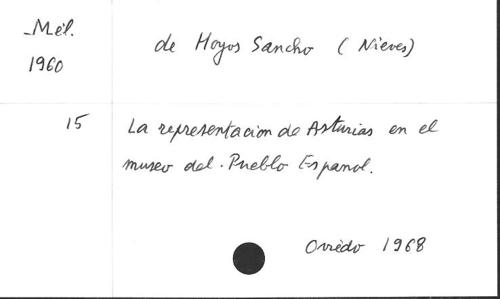 Mél.
1960
de Hoyos Sancho (Nieves)
15
La representacion de Asturias en el
museo del. Pueblo Espanol.
Oviedo 1968